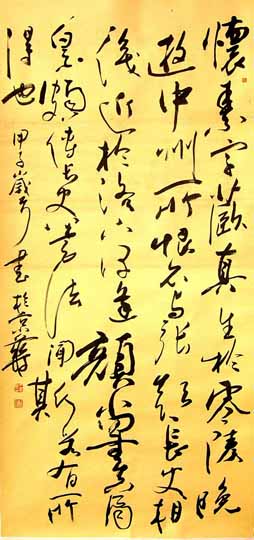 懷素字藏真生於零陵晚
遊中州所恨不與張顛長史相
識近於洛下逢顏尚書真卿
頗傳長史筆法聞斯若有所
得也
甲子歲書於京華